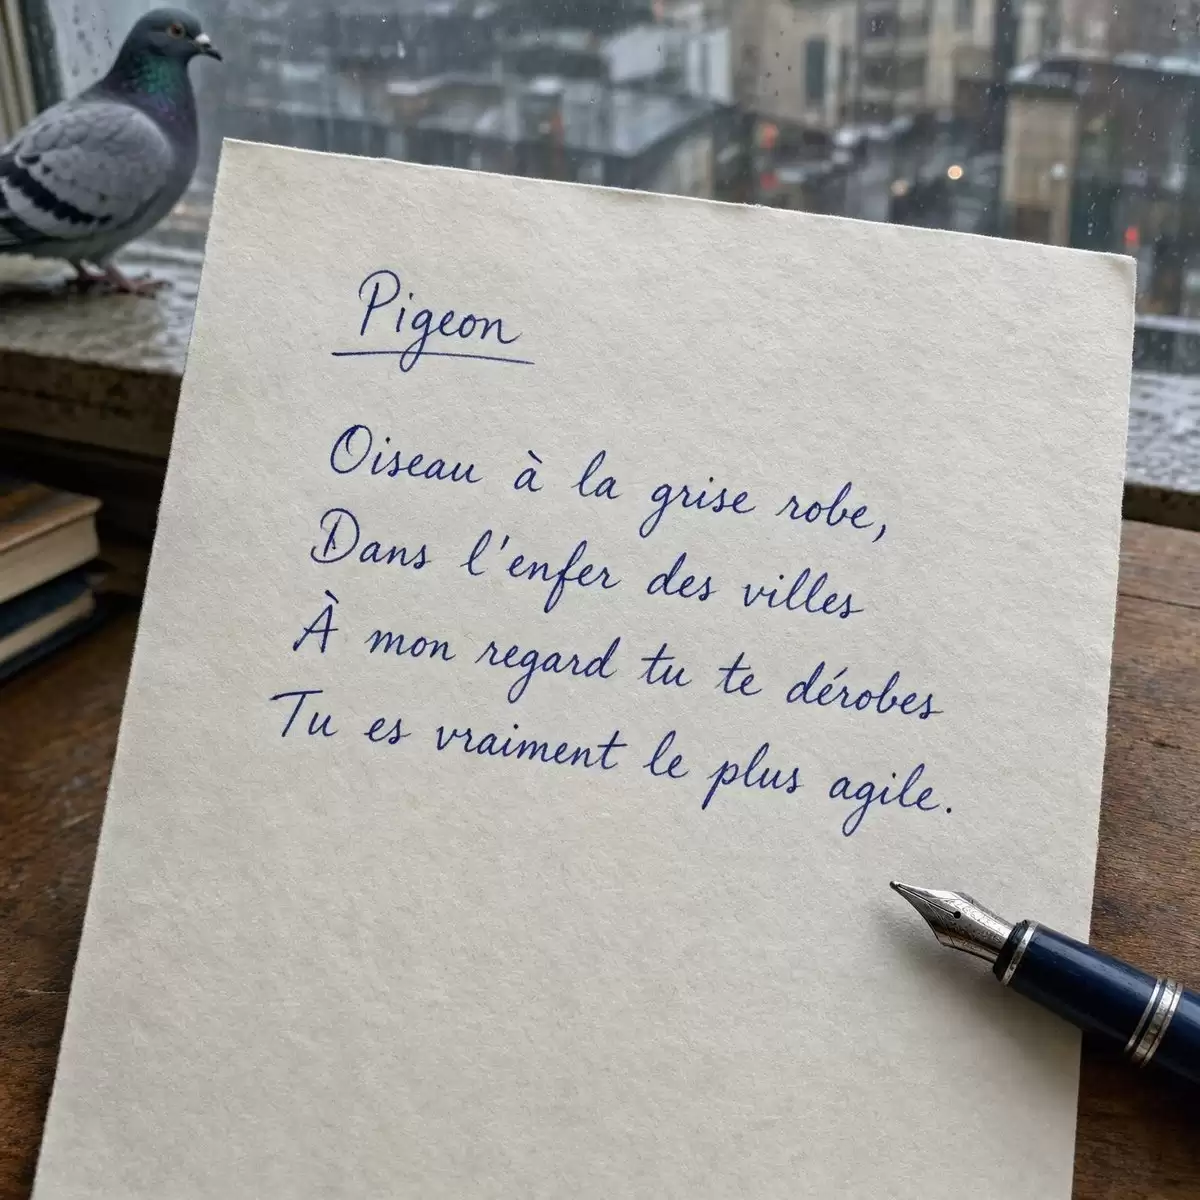 Pigeon
Oiseau à la grise robe,
Dans l'enfer des villes
À mon regard tu te dérobes
Tu es vraiment le plus agile.